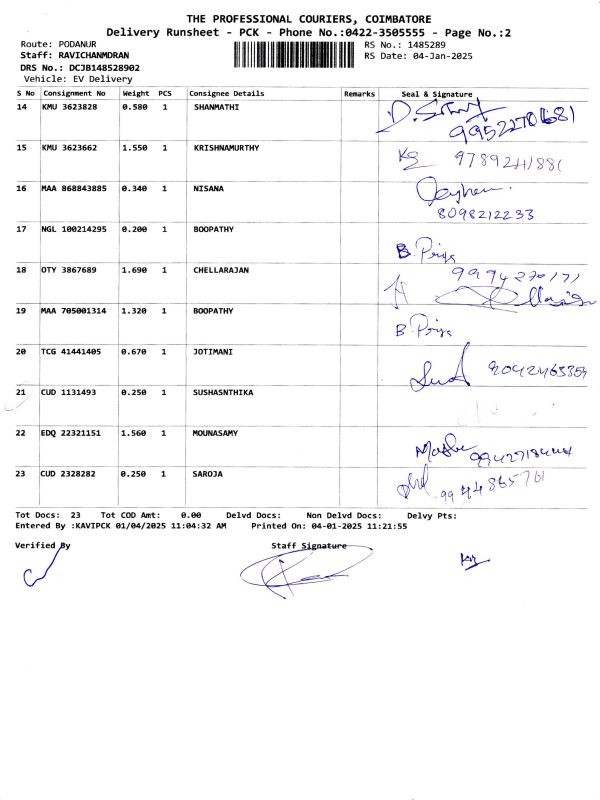 THE PROFESSIONAL COURIERS, COIMBATORE
Delivery Runsheet - PCK - Phone No.:0422-3505555 - Page No.:2
Route: PODANUR RS No.: 1485289
Staff: RAVICHANMDRAN RS Date: 04-Jan-2025
DRS No.: DCJB148528902
Vehicle: EV Delivery
S No Consignment No Weight PCS Consignee Details Remarks Seal & Signature
14 KMU 3623828 0.580 1 SHANMATHI
9952270681
15 KMU 3623662 1.550 1 KRISHNAMURTHY
9789241881
16 MAA 868843885 0.340 1 NISANA
8098212233
17 NGL 100214295 0.200 1 BOOPATHY
B. Priya
18 OTY 3867689 1.690 1 CHELLARAJAN
9994270171
19 MAA 705001314 1.320 1 BOOPATHY
B Priya
20 TCG 41441405 0.670 1 JOTIMANI
21 CUD 1131493 0.250 1 SUSHASNTHIKA
22 EDQ 22321151 1.560 1 MOUNASAMY
23 CUD 2328282 0.250 1 SAROJA
9944865761
Tot Docs: 23 Tot COD Amt: 0.00 Delvd Docs: Non Delvd Docs: Delvy Pts:
Entered By :KAVIPCK 01/04/2025 11:04:32 AM Printed On: 04-01-2025 11:21:55
Verified By Staff Signature